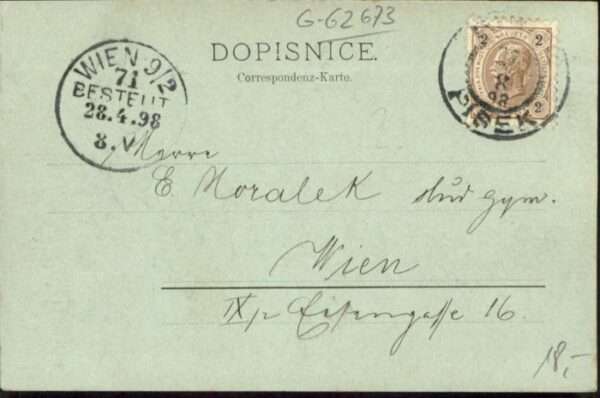 G-62673
DOPISNICE.
Correspondenz-Karte.
WIEN 9/2
71
BESTELLT
28.4.98
8.V
2
2
98
PISEK
Herrn
E Moralek stud gym.
Wien
IX/2 Eisengasse 16.
18,-